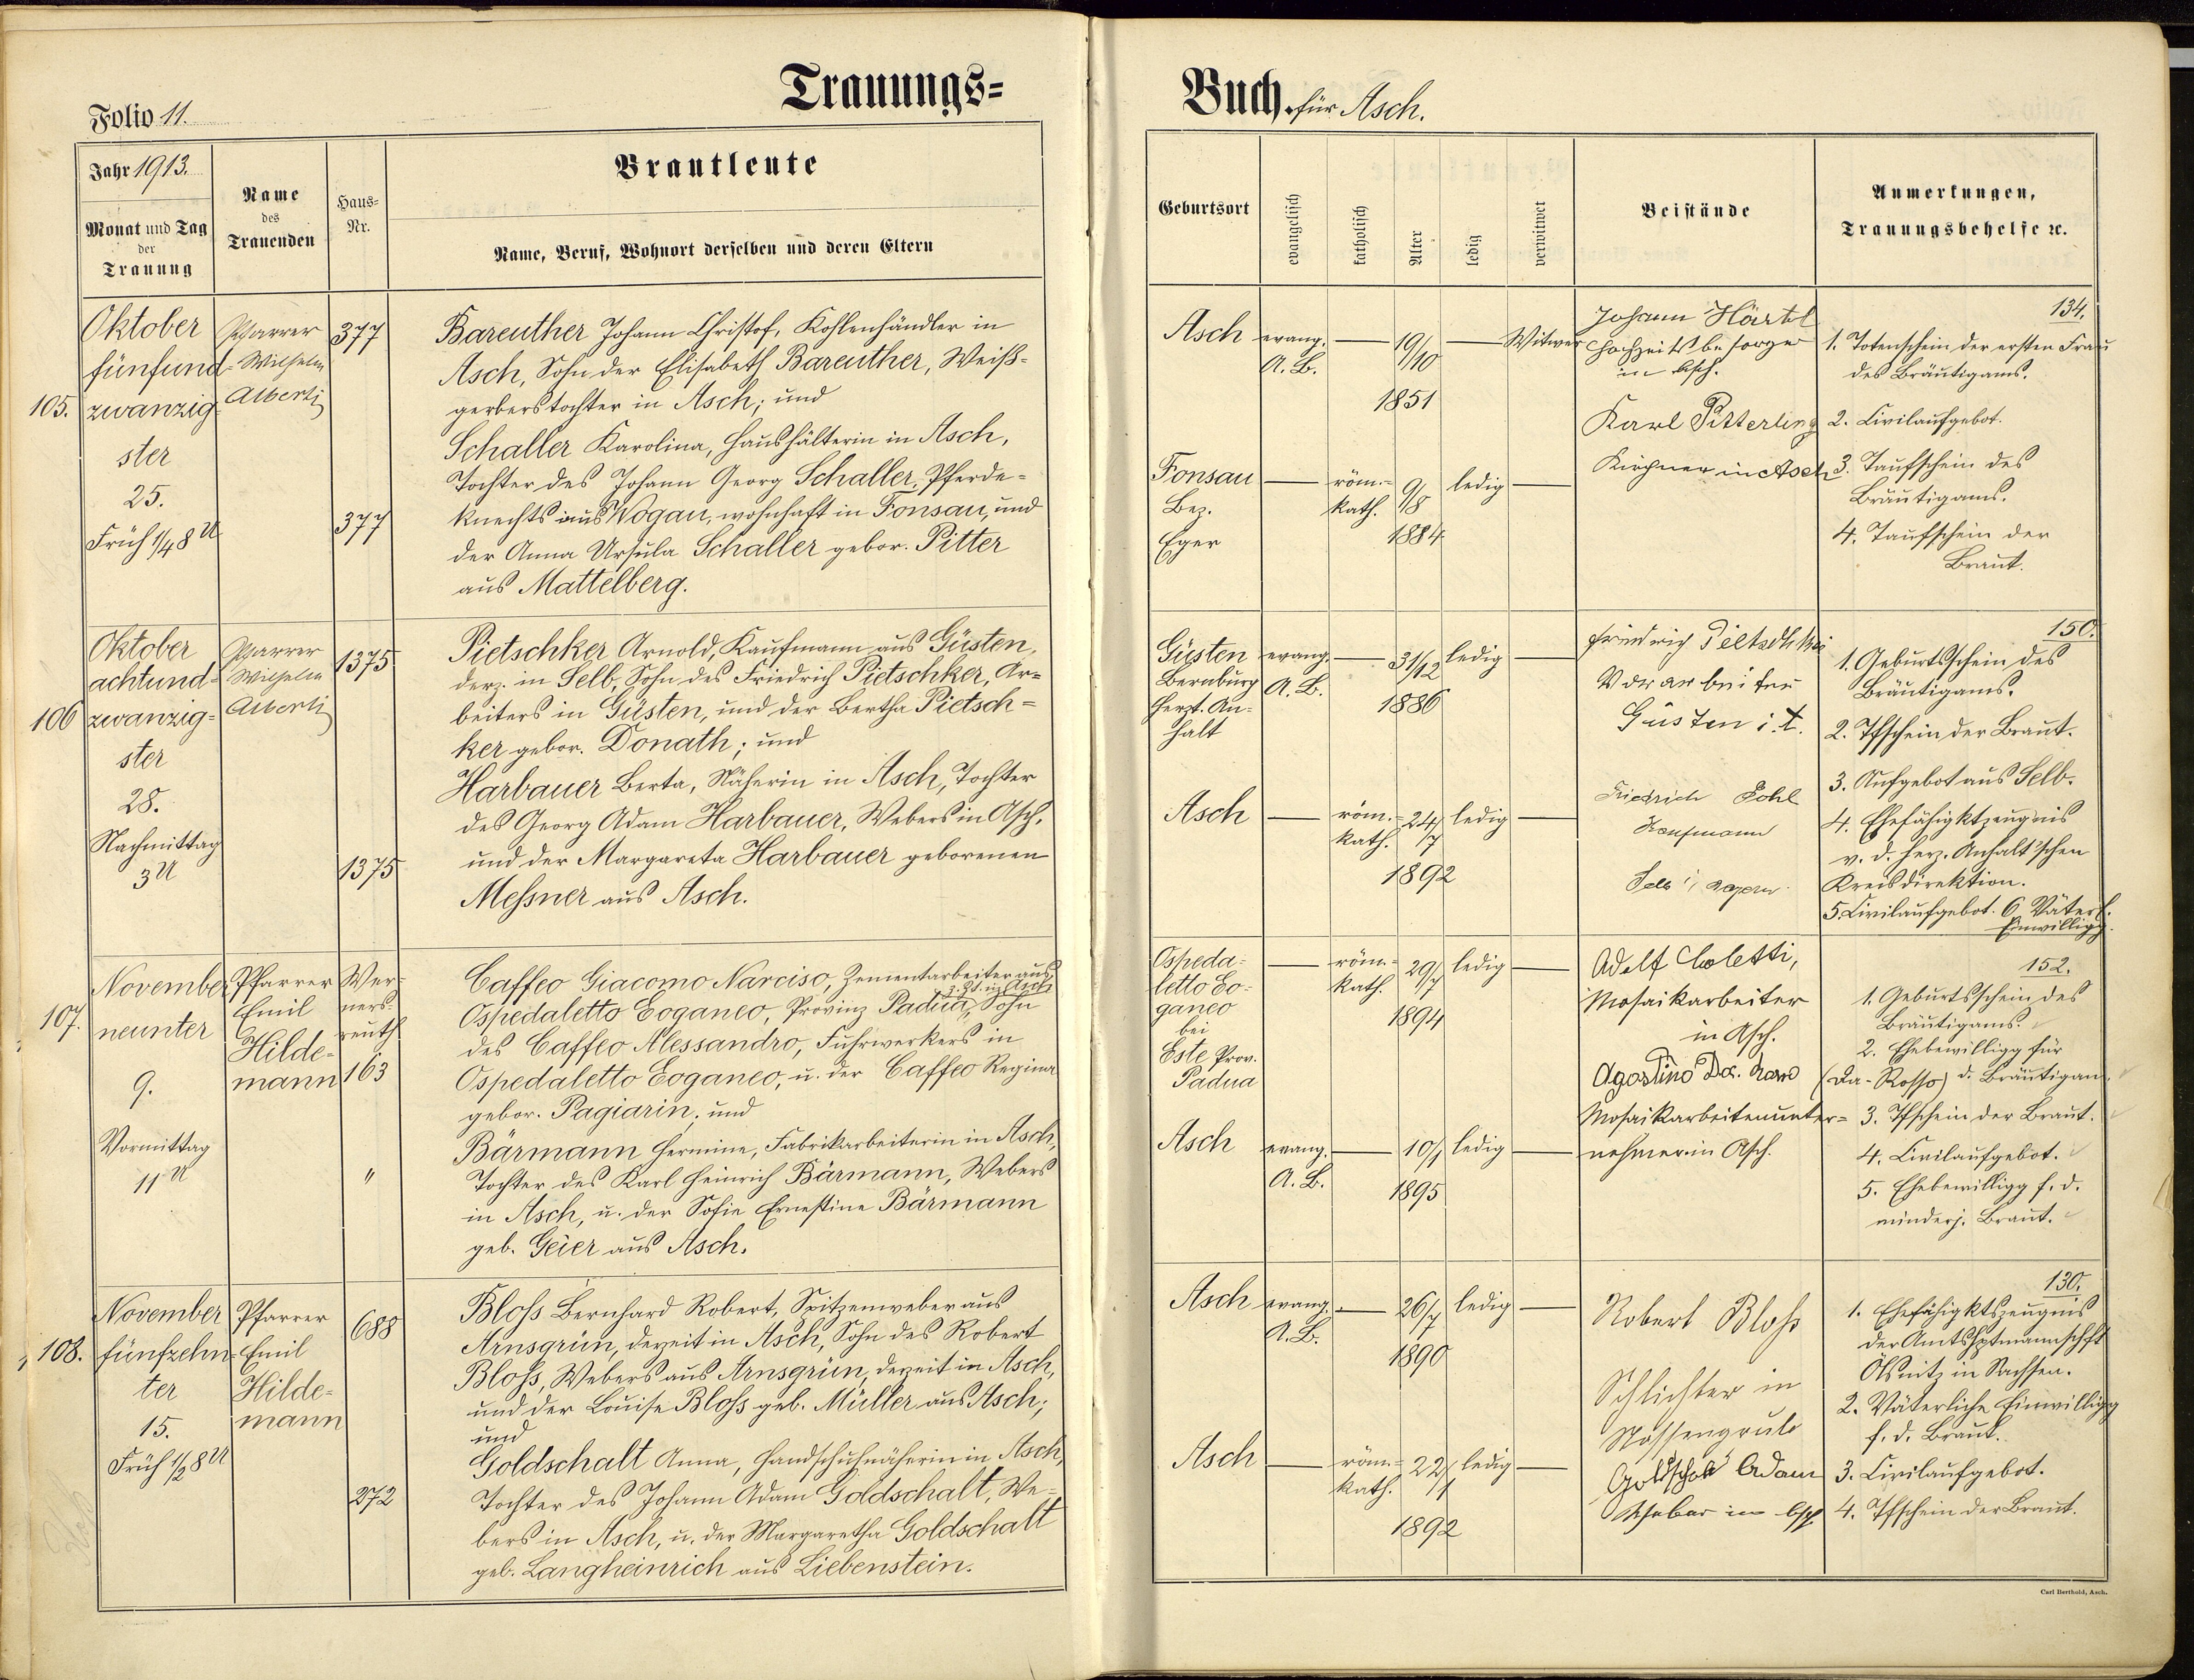 Trauungs=
Folio 11.
Jahr 1913.
Monat und Tag
der
Trauung
Name
des
Trauenden
Haus=
Nr.
Brautleute
Name, Beruf, Wohnort derselben und deren Eltern
105.
Oktober
fünfund-
zwanzig
ster
25.
Früh 1/4 8 U
Pfarrer
Wilhelm
Alberti
377
377
Bareuther Johann Christof, Kohlenhändler in
Asch, Sohn der Elisabeth Bareuther, Weiß-
gerberstochter in Asch; und
Schaller Karolina, Haushälterin in Asch,
Tochter des Johann Georg Schaller, Pferde-
knechts aus Wogau, wohnhaft in Fonsau, und
der Anna Ursula Schaller gebor. Pitter
aus Mattelberg.
106
Oktober
achtund=
zwanzig=
ster
28.
Nachmittag
3 U
Pfarrer
Wilhelm
Alberti
1375
1375
Pietschker Arnold, Kaufmann aus Güsten,
derz. in Selb, Sohn des Friedrich Pietschker, Ar=
beiters in Güsten, und der Bertha Pietsch=
ker gebor. Donath; und
Harbauer Berta, Näherin in Asch, Tochter
des Georg Adam Harbauer, Webers in Asch,
und der Margareta Harbauer geborenen
Messner aus Asch.
107.
November
neunter
9.
Vormittag
11 U
Pfarrer
Emil
Hilde-
mann
Wer-
ners-
reuth
163
"
Caffeo Giacomo Narciso, Zementarbeiter aus
z. Zt. in Asch
Ospedaletto Eoganeo, Provinz Padua, Sohn
des Caffeo Alessandro, Fuhrwerkers in
Ospedaletto Eoganeo, u. der Caffeo Regina
gebor. Pagiarin, und
Bärmann Hermine, Fabrikarbeiterin in Asch,
Tochter des Karl Heinrich Bärmann, Webers
in Asch, u. der Sofie Ernestine Bärmann
geb. Geier aus Asch.
108.
November
fünfzehn-
ter
15.
Früh 1/2 8 U
Pfarrer
Emil
Hilde-
mann
688
272
Bloss Bernhard Robert, Spitzenweber aus
Arnsgrün, derzeit in Asch, Sohn des Robert
Bloss, Webers aus Arnsgrün, derzeit in Asch,
und der Louise Bloss geb. Müller aus Asch;
und
Goldschalt Anna, Handschuhnäherin in Asch,
Tochter des Johann Adam Goldschalt, We-
bers in Asch, u. der Margaretha Goldschalt
geb. Langheinrich aus Liebenstein.
Buch. für Asch.
Geburtsort
evangelisch
katholisch
Alter
ledig
verwitwet
Beistände
Anmerkungen,
Trauungsbehelfe ꝛc.
Asch
evang.
A. B.
19/10
1851
Witwer
Fonsau
Bez.
Eger
röm.-
kath.
9/8
1884
ledig
Johann Härtl
Hochzeitsbesorger
in Asch.
Karl Pitterling
Kirchner in Asch
134.
1. Totenschein der ersten Frau
des Bräutigams.
2. Civilaufgebot.
3. Taufschein des
Bräutigams.
4. Taufschein der
Braut.
Güsten
Bernburg
Herzt. An-
halt
evang.
A. B.
31/12
1886
ledig
Asch
röm.-
kath.
24/7
1892
ledig
Friedrich
Vorarbeiter
Güsten i. A.
Friedrich Pohl
Kaufmann
Selb i/
150.
1. Geburtsschein des
Bräutigams.
2. Tfschein der Braut.
3. Aufgebot aus Selb.
4. Ehefähigktzeugnis
v. d. herz. Anhalt'schen
Kreisdirektion.
5. Civilaufgebot. 6. Väterl.
Einwilligg.
Ospeda-
letto Eo-
ganeo
bei
Este Prov.
Padua
röm.-
kath.
29/7
1894
ledig
Asch
evang.
A. B.
10/1
1895
ledig
Adolf Coletti,
Mosaikarbeiter
in Asch.
Agostino Da. Rosso
Mosaikarbeitenunter=
nehmer in Asch.
152.
1. Geburtsschein des
Bräutigams.
2. Ehebewilligg für
(Da-Rosso) d. Bräutigam.
3. Tfschein der Braut.
4. Civilaufgebot.
5. Ehebewilligg f. d.
minderj. Braut.
Asch
evang.
A. B.
26/7
1890
ledig
Asch
röm.-
kath.
22/1
1892
ledig
Robert Bloss
Schlichter in
Goldschalt Adam
Weber in Asch
130.
1. Ehefähigktszeugnis
der Amtshptmannschft
Ölsnitz in Sachsen.
2. Väterliche Einwilligg
f. d. Braut.
3. Civilaufgebot.
4. Tfschein der Braut.
Carl Berthold, Asch.